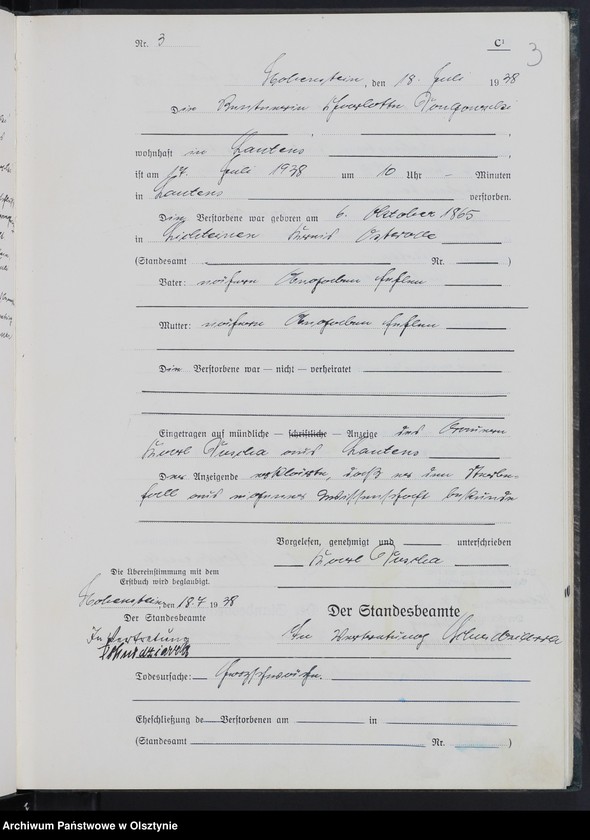 Nr. 3 C¹ 3
Hohenstein, den 18. Juli 1938
Die Rentnerin Charlotte
wohnhaft in Lautens
ist am 17. Juli 1938 um 10 Uhr – Minuten
in Lautens verstorben.
Die Verstorbene war geboren am 6. Oktober 1865
in Lichteinen Kreis Osterode
(Standesamt Nr. )
Vater: nähere Angaben fehlen
Mutter: nähere Angaben fehlen
Die Verstorbene war — nicht — verheiratet
Eingetragen auf mündliche — schriftliche — Anzeige des
Karl aus Lautens
Der Anzeigende erklärte, daß er den Sterbe-
fall aus eigener Wissenschaft bekunde
Vorgelesen, genehmigt und unterschrieben
Karl
Die Übereinstimmung mit dem
Erstbuch wird beglaubigt.
Hohenstein, den 18.7 1938
Der Standesbeamte
In Vertretung
Der Standesbeamte
In Vertretung
Todesursache: Herzschwäche.
Eheschließung de Verstorbenen am in
(Standesamt Nr. )
Archiwum Państwowe w Olsztynie